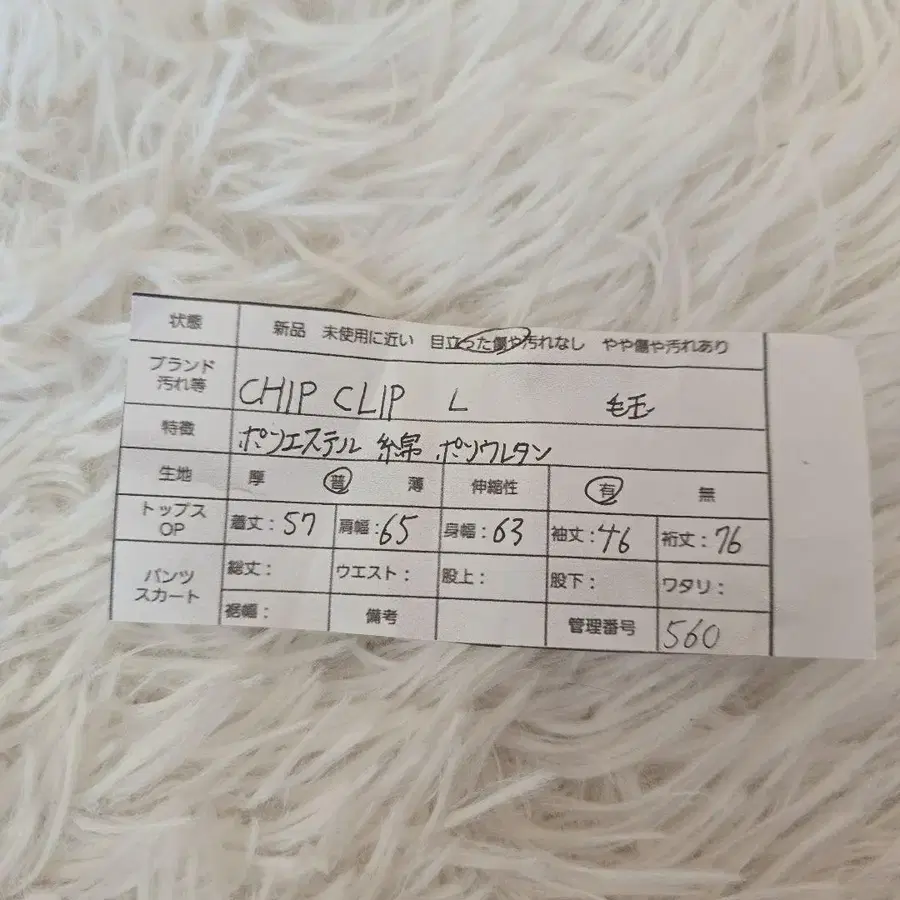 状態 新品 未使用に近い 目立った傷や汚れなし やや傷や汚れあり
ブランド
汚れ等 CHIP CLIP L 毛玉
特徴 ポリエステル 綿 ポリウレタン
生地 厚 普 薄 伸縮性 有 無
トップス
OP 着丈:57 肩幅:65 身幅:63 袖丈:46 裄丈:76
パンツ
スカート 総丈: ウエスト: 股上: 股下: ワタリ:
裾幅: 備考 管理番号 560